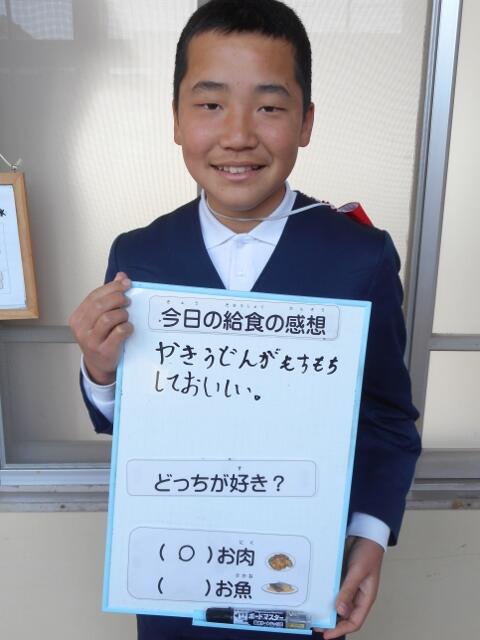 今日の給食の感想
やきうどんがもちもち
しておいしい。
どっちが好き？
( ○ ) お肉
(   ) お魚
ボードマスター